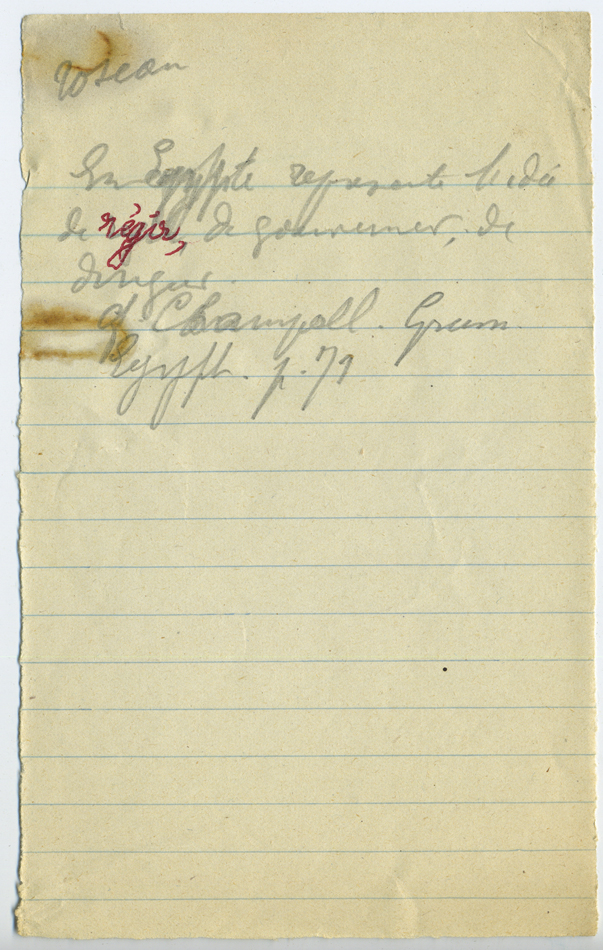 roseau
En Egypte represente l'idée
de régir, de gouverner, de
diriger.
cf Champoll. Gram
Egypt. p. 71